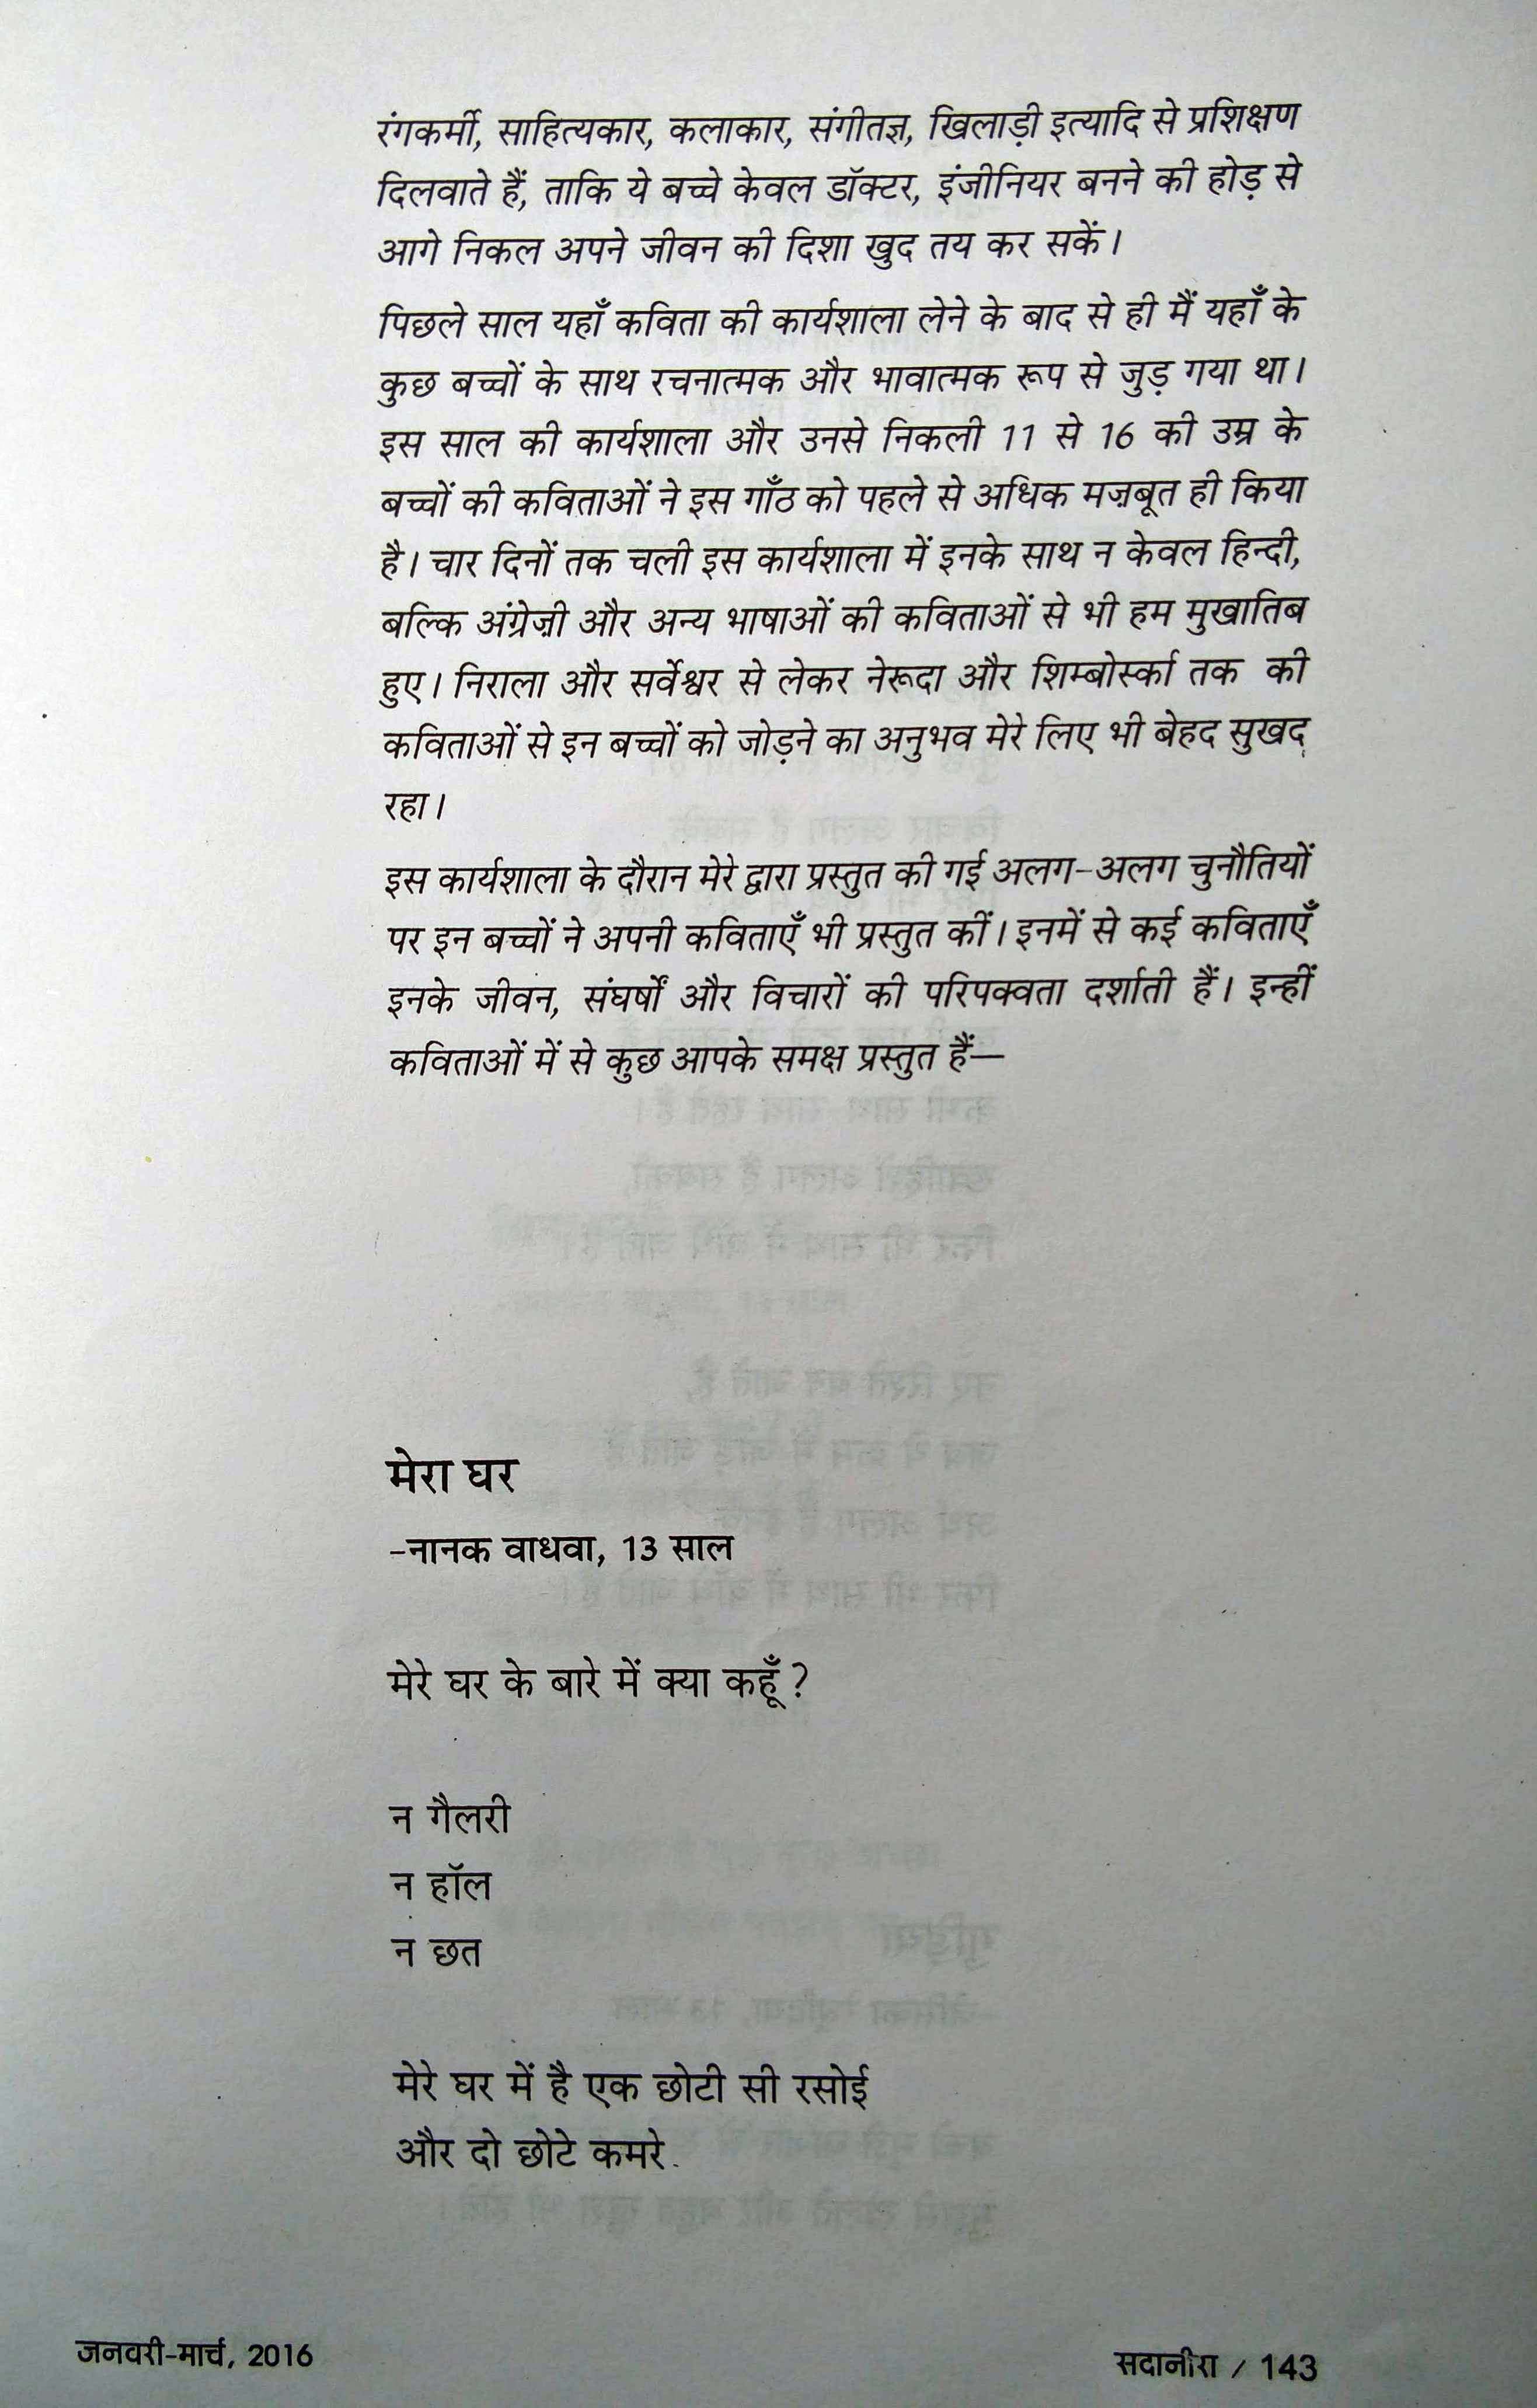 रंगकर्मी, साहित्यकार, कलाकार, संगीतज्ञ, खिलाड़ी इत्यादि से प्रशिक्षण
दिलवाते हैं, ताकि ये बच्चे केवल डॉक्टर, इंजीनियर बनने की होड़ से
आगे निकल अपने जीवन की दिशा खुद तय कर सकें।
पिछले साल यहाँ कविता की कार्यशाला लेने के बाद से ही मैं यहाँ के
कुछ बच्चों के साथ रचनात्मक और भावात्मक रूप से जुड़ गया था।
इस साल की कार्यशाला और उनसे निकली 11 से 16 की उम्र के
बच्चों की कविताओं ने इस गाँठ को पहले से अधिक मज़बूत ही किया
है। चार दिनों तक चली इस कार्यशाला में इनके साथ न केवल हिन्दी,
बल्कि अंग्रेज़ी और अन्य भाषाओं की कविताओं से भी हम मुखातिब
हुए। निराला और सर्वेश्वर से लेकर नेरूदा और शिम्बोर्स्का तक की
कविताओं से इन बच्चों को जोड़ने का अनुभव मेरे लिए भी बेहद सुखद
रहा।
इस कार्यशाला के दौरान मेरे द्वारा प्रस्तुत की गई अलग-अलग चुनौतियों
पर इन बच्चों ने अपनी कविताएँ भी प्रस्तुत कीं। इनमें से कई कविताएँ
इनके जीवन, संघर्षों और विचारों की परिपक्वता दर्शाती हैं। इन्हीं
कविताओं में से कुछ आपके समक्ष प्रस्तुत हैं—
मेरा घर
-नानक वाधवा, 13 साल
मेरे घर के बारे में क्या कहूँ?
न गैलरी
न हॉल
न छत
मेरे घर में है एक छोटी सी रसोई
और दो छोटे कमरे.
जनवरी-मार्च, 2016
सदानीरा / 143